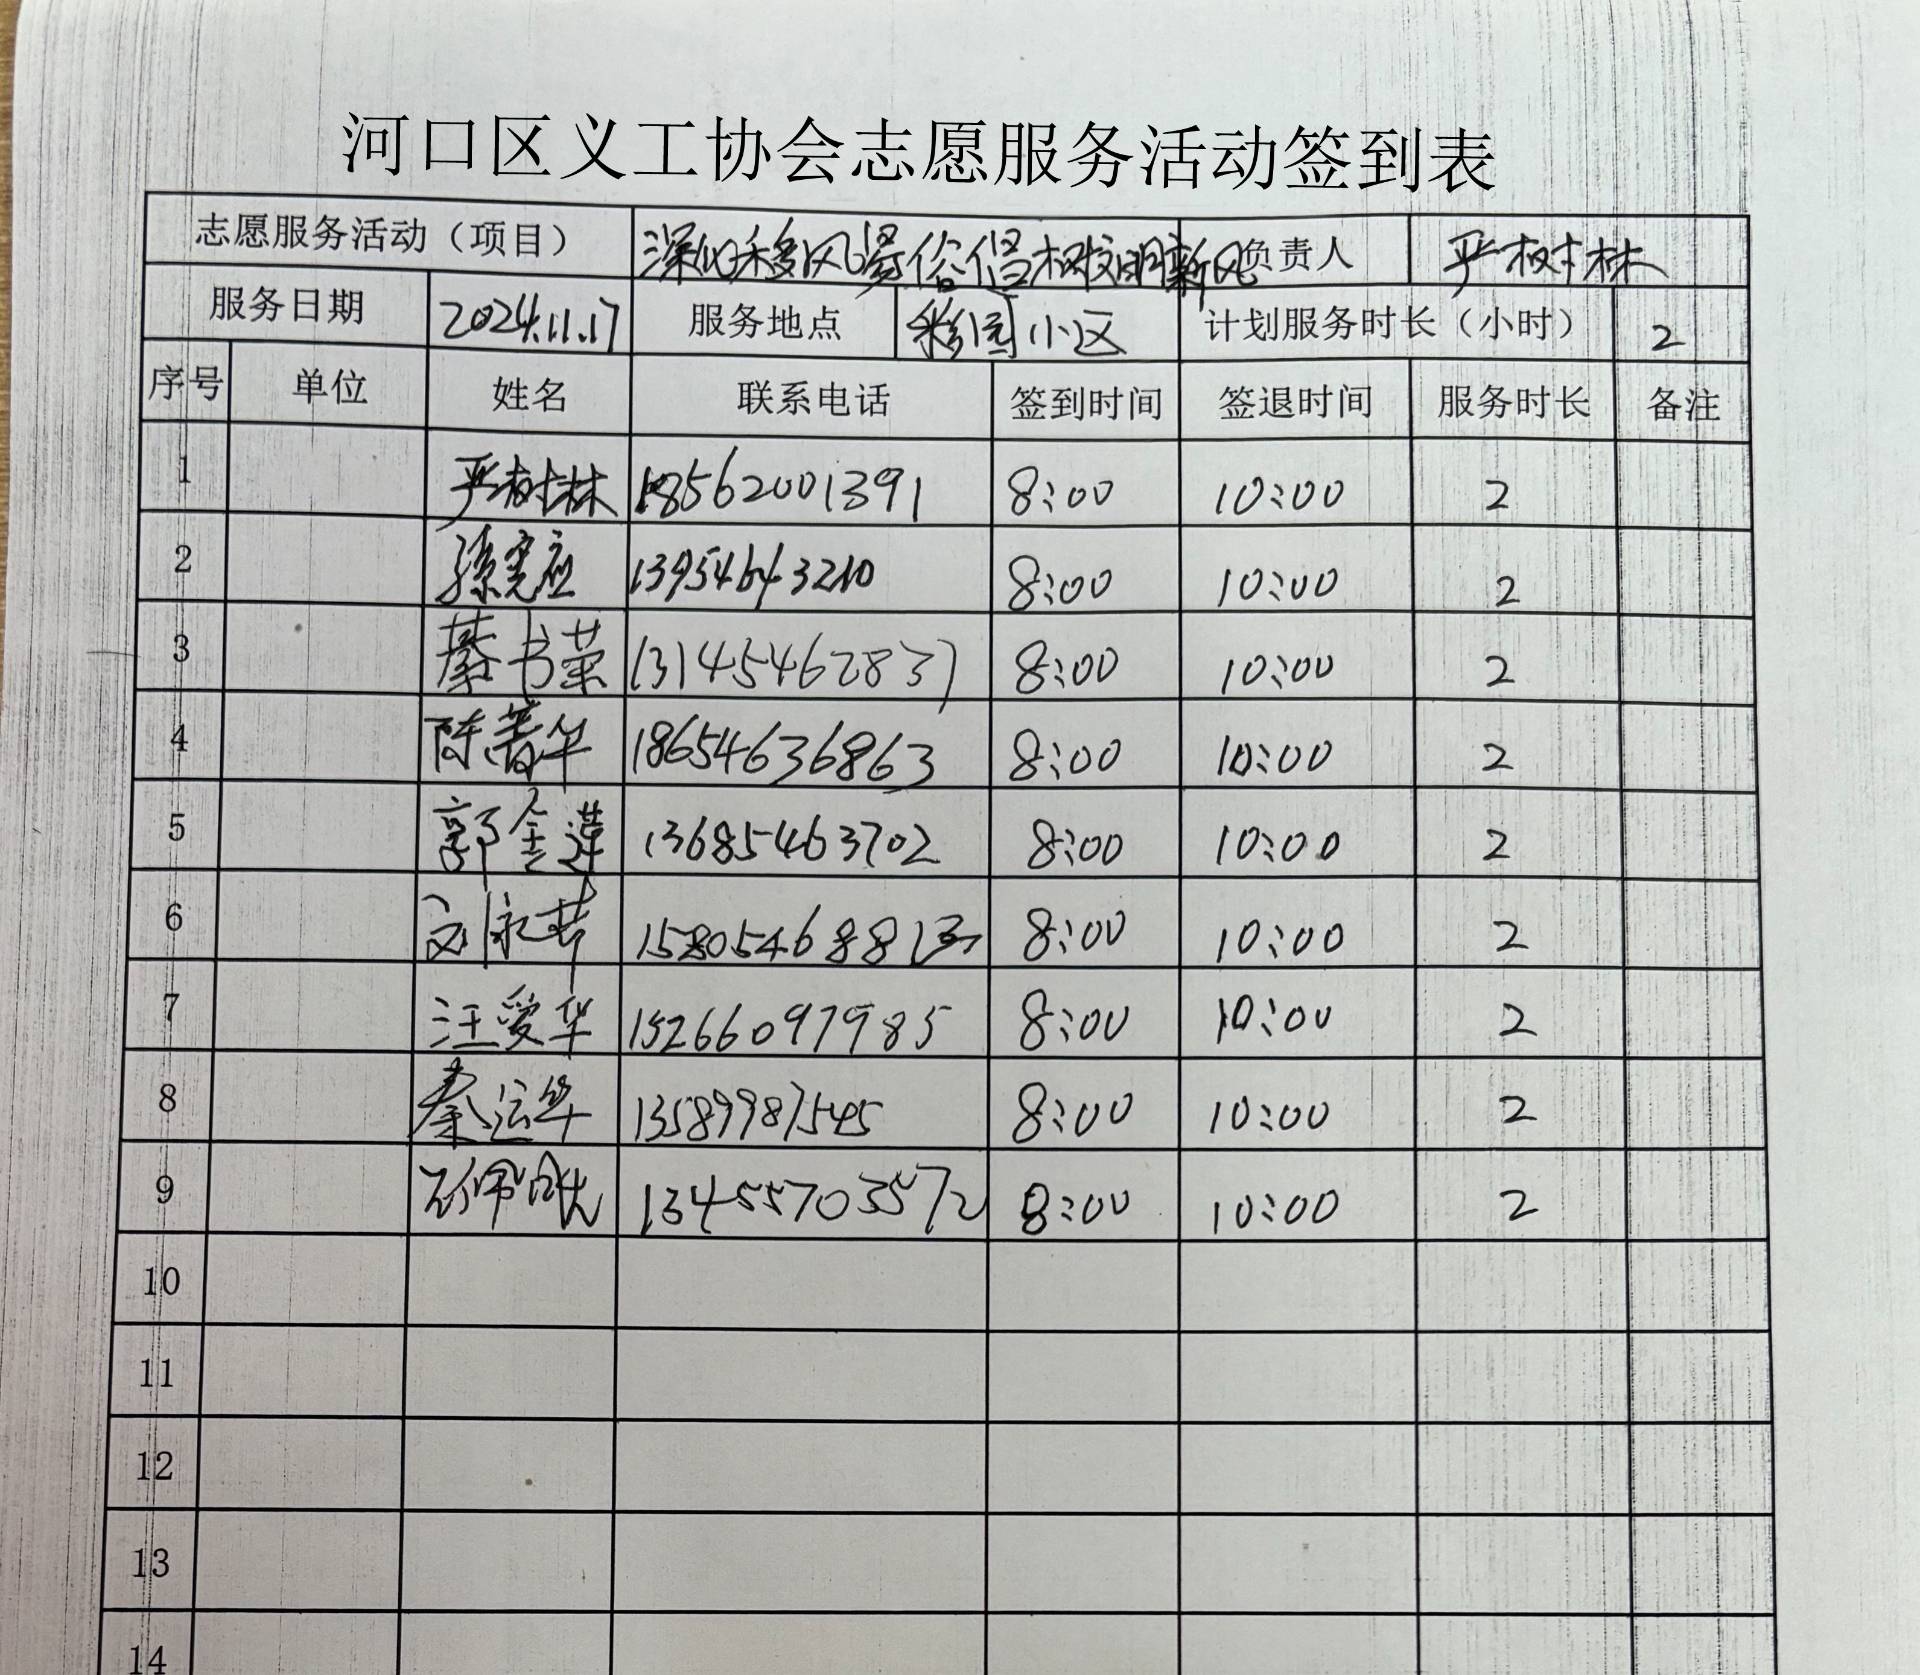 河口区义工协会志愿服务活动签到表
志愿服务活动（项目） 深化移风易俗倡树文明新风 负责人 严树林
服务日期 2024.11.17 服务地点 彩园小区 计划服务时长（小时） 2
序号 单位 姓名 联系电话 签到时间 签退时间 服务时长 备注
1 严树林 18562001391 8:00 10:00 2
2 孙宪应 13954643210 8:00 10:00 2
3 綦书荣 13145462837 8:00 10:00 2
4 陈菁华 18654636863 8:00 10:00 2
5 郭金莲 13685463702 8:00 10:00 2
6 刘永芹 8:00 10:00 2
7 汪爱华 15266097985 8:00 10:00 2
8 秦运华 13589987545 8:00 10:00 2
9 13455703572 8:00 10:00 2
10
11
12
13
14